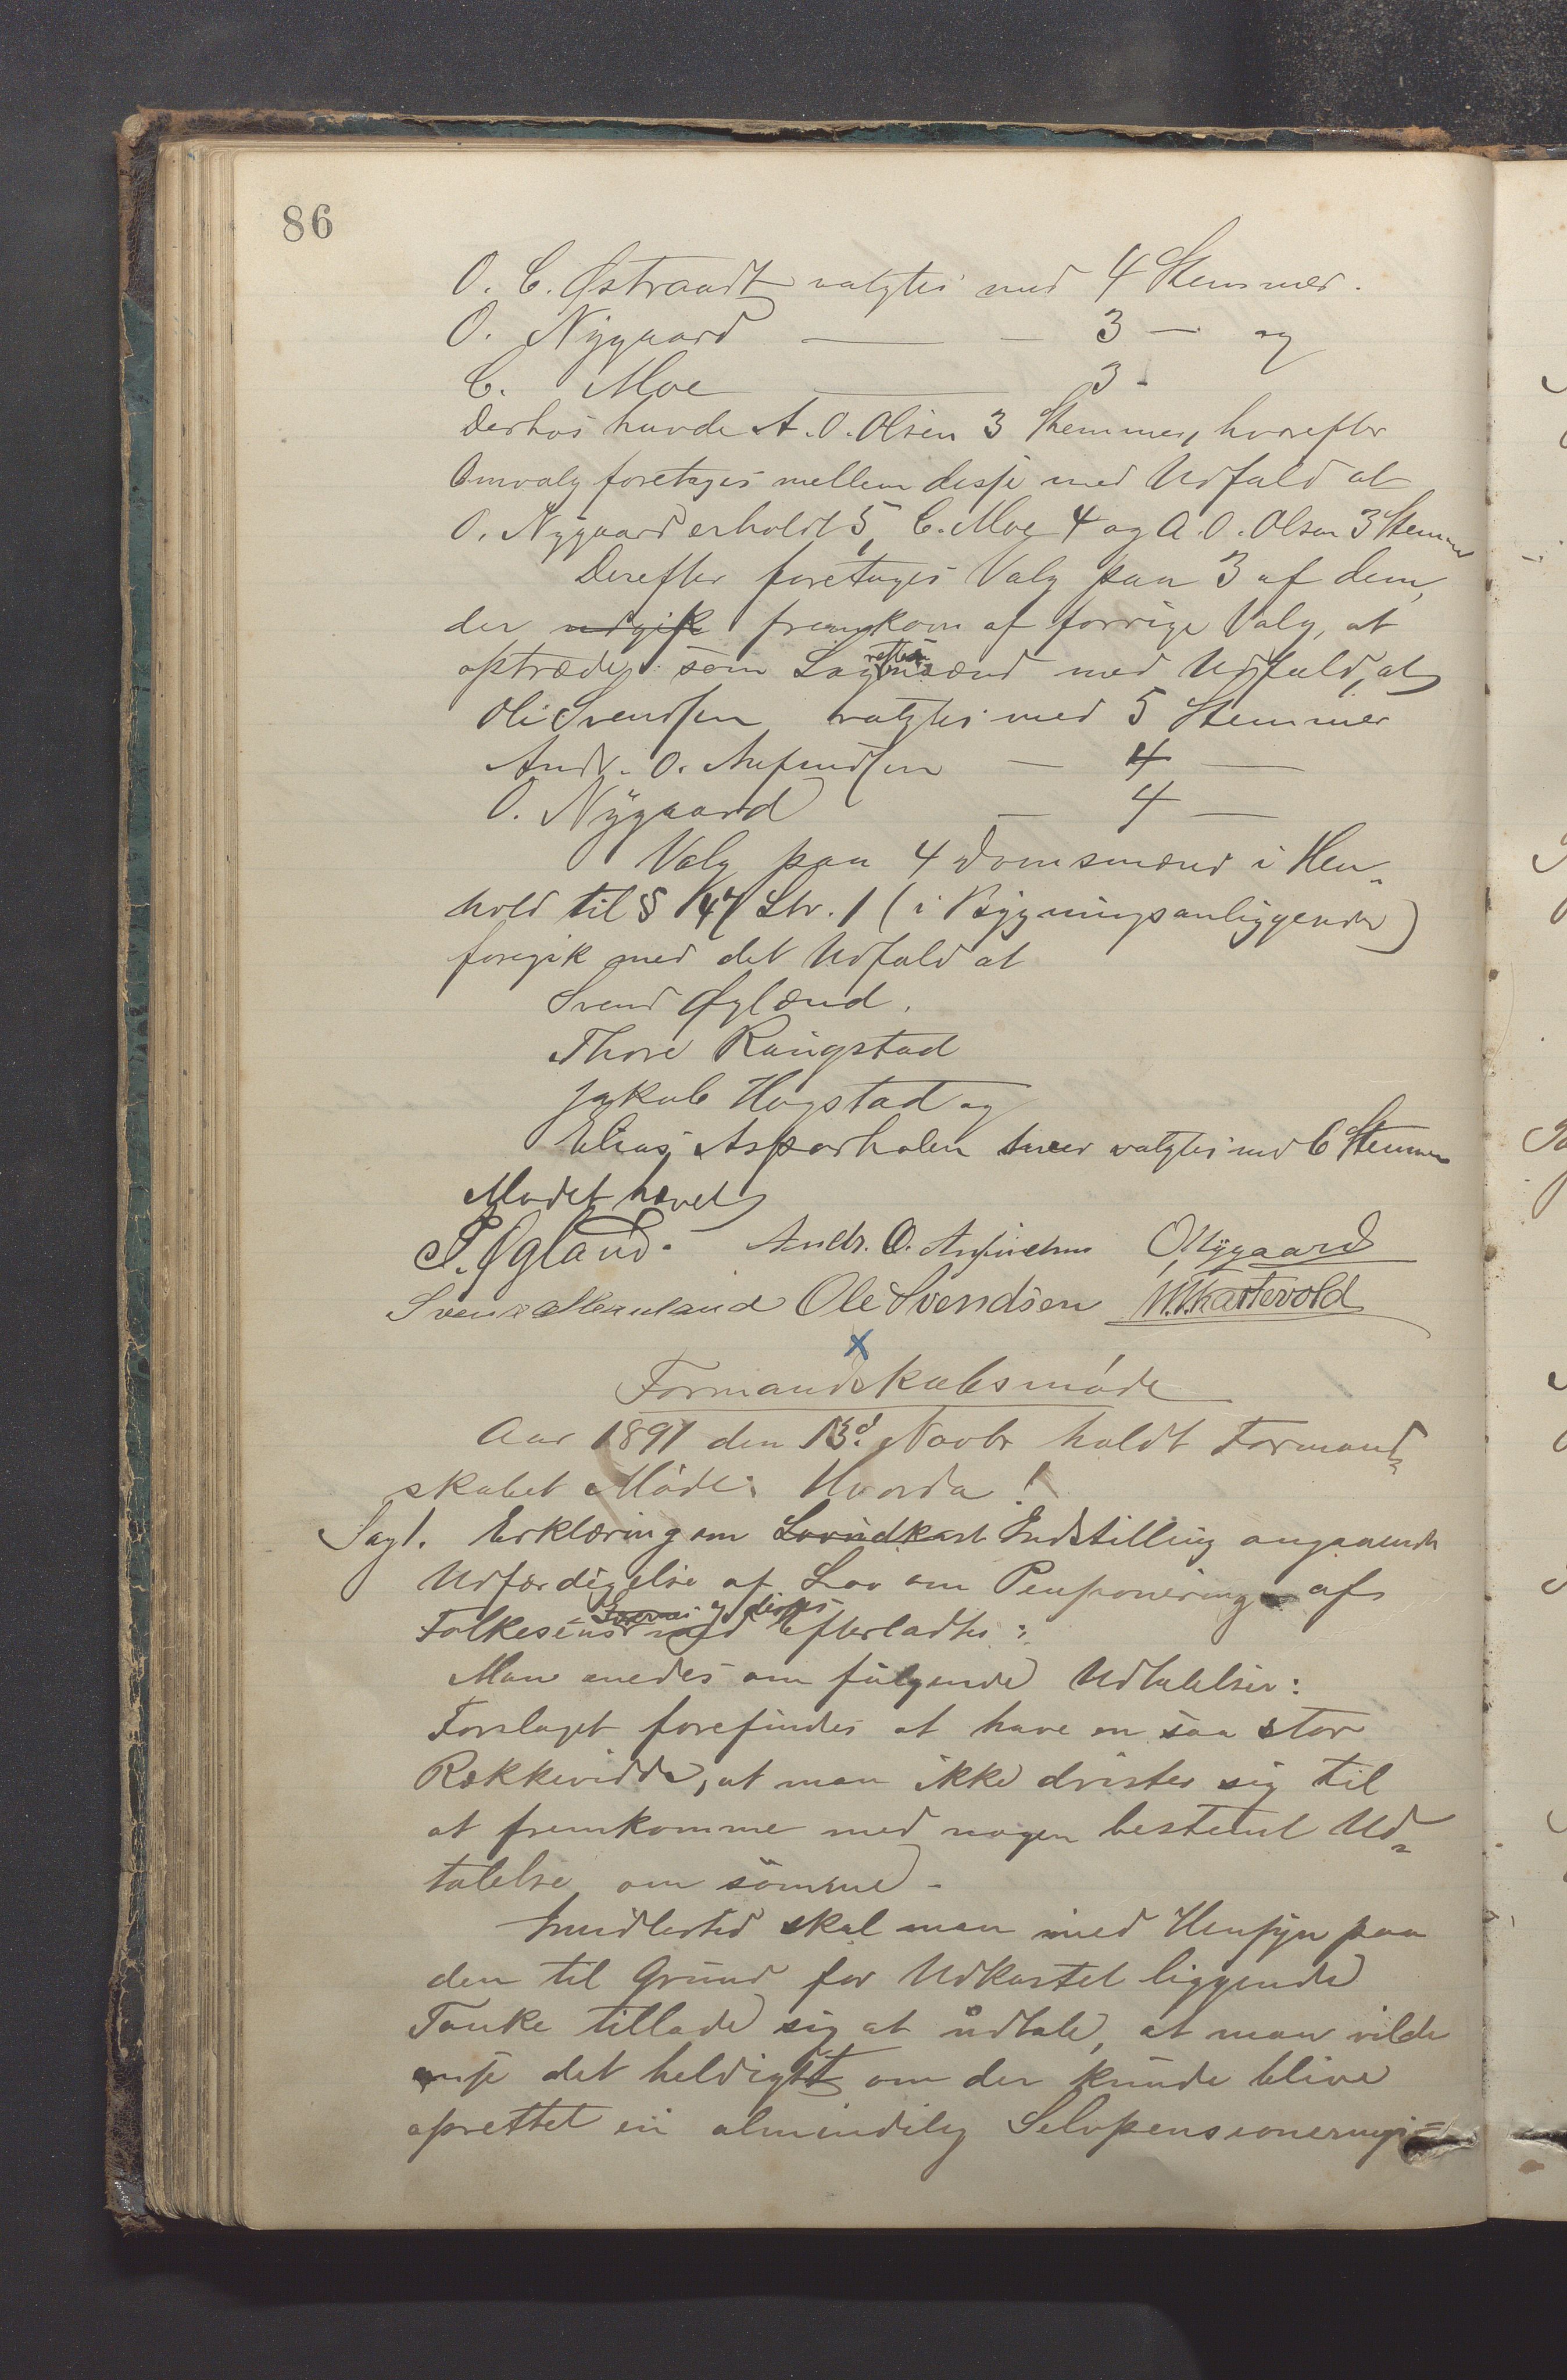 86
O. C. Østraadt valgtes med 4 Stemmer.
O. Nygaard — — 3 — og
C. Moe — 3 -
Derhos havde A. O. Olsen 3 Stemmer, hvorefter
Omvalg foretoges mellem disse med Udfald at
O. Nygaard erholdt 5, C. Moe 4 og A. O. Olsen 3 Stemmer
Derefter foretoges Valg paa 3 af dem,
der udgik fremkom af forrige Valg, at
optræde som Lagrettesmænd med Udfald, at
Ole Svendsen valgtes med 5 Stemmer
Andr. O. Anfindsen — 4 —
O. Nygaard — 4 —
Valg paa 4 Domsmænd i Hen-
hold til § 147 Ltr. 1 (i Bygningsanliggender)
foregik med det Udfald at
Svend Øglænd.
Thore Ringstad
Jakob Hogstad og
Elias Asparholen valgtes med 6 Stemmer
Mødet hævet
S. Øglænd. Andr. O. Anfindsen O. Nygaard
Ole Svendsen
x
Formandskabsmøde
Aar 1891 den 13d. Novbr holdt Formand-
skabet Møde. Hvorda!
Sag 1. Erklæring om Lovudkast Indstilling angaaende
Udfærdigelse af Lov om Pensionering af
Folkes og disses Efterladte:
Man enedes om følgende Udtalelser:
Forslaget forefindes at have en saa stor
Rækkevidde, at man ikke drister sig til
at fremkomme med nogen bestemt Ud-
talelse om samme.
Imidlertid skal man med Hensyn paa
den til Grund for Udkastet liggende
Tanke tillade sig at udtale, at man vilde
anse det heldigst om der kunde blive
oprettet en almindelig Selvpensionerings=